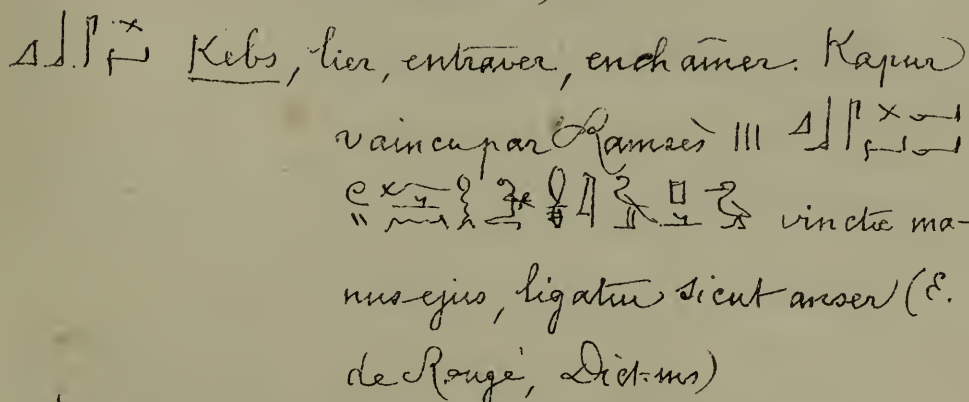 Kebs, lier, entraver, enchaîner. Kapur
vaincu par Ramsès III
vinctæ ma-
nus ejus, ligatus sicut anser (E.
de Rougé, Dict. ms)